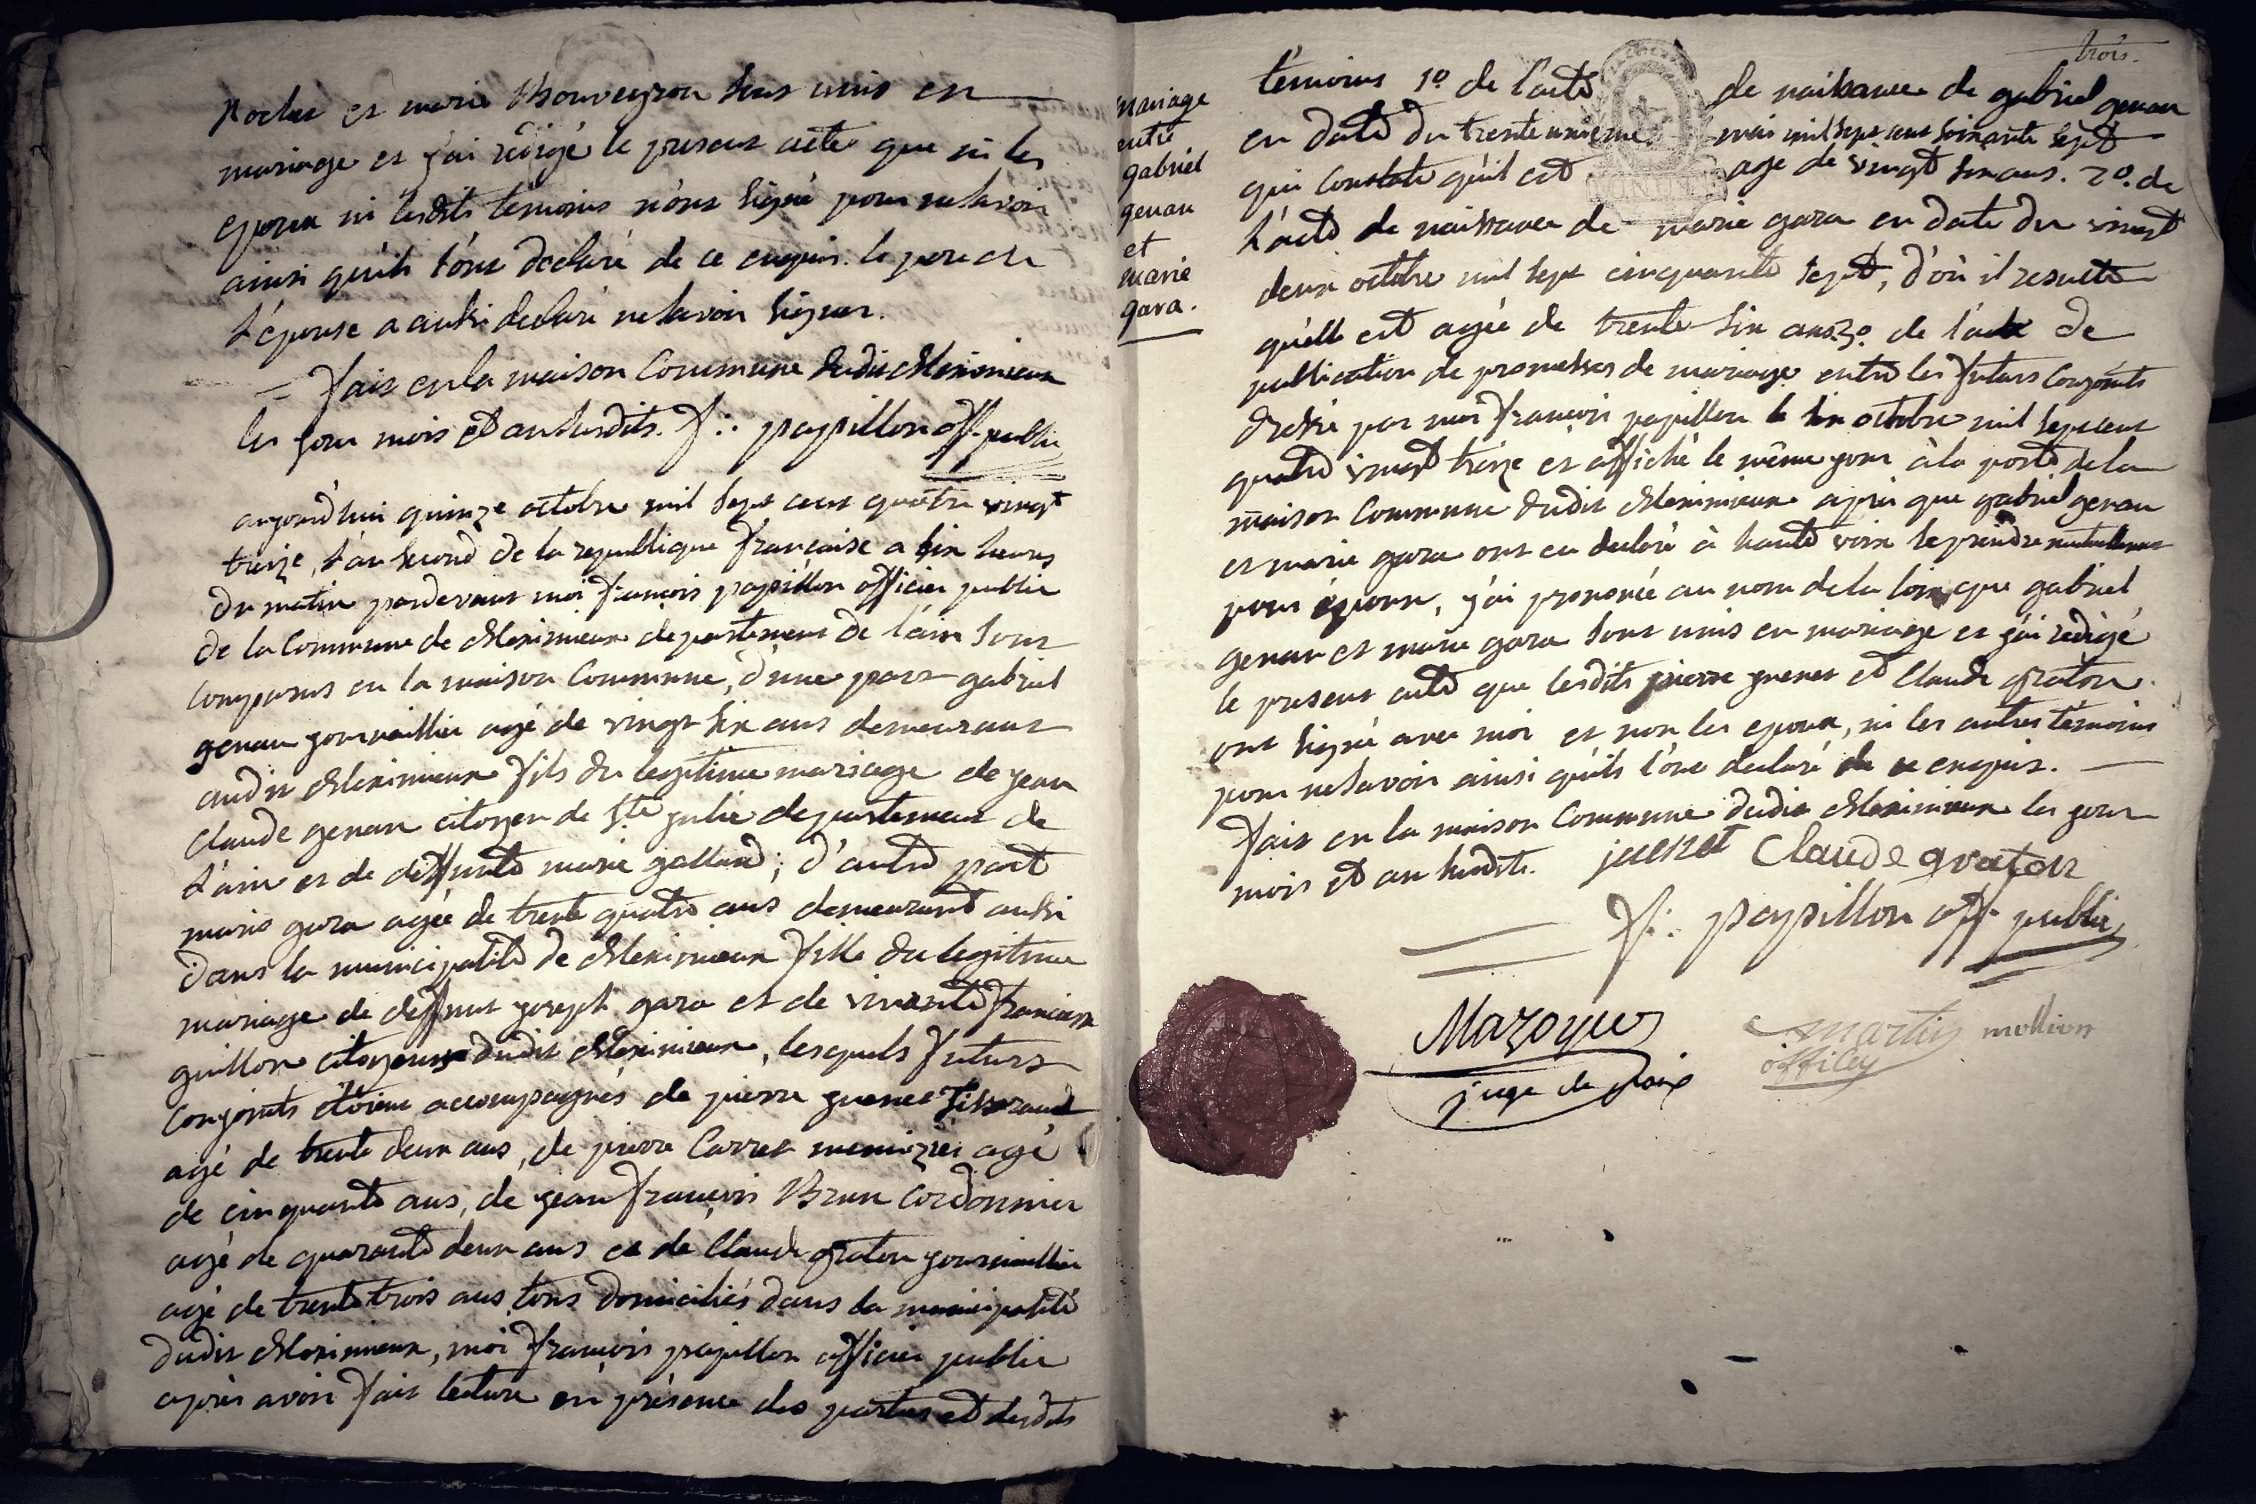 Rochet et marie Bouveyron sont unis en
mariage et j'ai rédigé le present acte que ni les
epoux ni lesdits temoins n'ont signé pour ne savoir
ainsi qu'ils l'ont declaré de ce enquis. le pere de
l'épouse a aussi declaré ne savoir signer.
fait en la maison Commune dudit Meximieux
les jour mois et an susdits. f: papillon off. public
aujourd'hui quinze octobre mil sept cent quatre vingt
treize, l'an second de la republique française a six heures
du matin pardevant moi françois papillon officier public
de la Commune de Meximieux departement de l'ain sont
comparus en la maison Commune, d'une part gabriel
genan journaillier agé de vingt six ans demeurant
audit Meximieux fils du legitime mariage de jean
claude genan citoyen de ste julie departement de
l'ain et de deffunte marie galland; d'autre part
marie gara agée de trente quatre ans demeurant aussi
dans la municipalité de Meximieux fille du legitime
mariage de deffunt joseph gara et de vivante françoise
guillon citoyens dudit Meximieux, lesquels futurs
conjoints étoient accompagnés de pierre guenet tisserand
agé de trente deux ans, de pierre Carret menuizier agé
de cinquante ans, de jean françois Brun Cordonnier
agé de quarante deux ans et de Claude graton journaillier
agé de trente trois ans tous domiciliés dans la municipalité
dudit Meximieux, moi françois papillon officier public
après avoir fait lecture en présence des parties et desdits
trois.
mariage
entre
gabriel
genan
et
marie
gara.
témoins 1o. de l'acte de naissance de gabriel genan
en date du trente unieme mai mil sept cent soixante sept
qui Constate qu'il est age de vingt six ans. 2o. de
l'acte de naissance de marie gara en date du vingt
deux octobre mil sept cinquante sept, d'où il resulte
qu'elle est agée de trente six ans 3o. de l'acte de
publication de promesses de mariage entre les futurs Conjoints
dressé par moi françois papillon le six octobre mil sept cent
quatre vingt treize et affiché le même jour à la porte de la
maison Commune dudit Meximieux après que gabriel genan
et marie gara ont eu declaré à haute voix se prendre mutuellement
pour époux, j'ai prononcé au nom de la loi que gabriel
genan et marie gara sont unis en mariage et j'ai redigé
le present acte que lesdits pierre guenet et Claude graton
ont signé avec moi et non les epoux, ni les autres témoins
pour ne savoir ainsi qu'ils l'ont declaré de ce enquis.
fait en la maison Commune dudit Meximieux les jour
mois et an susdits. juenet Claude graton
f: papillon off. public
Mazoyer
juge de paix
martin mollion
officy